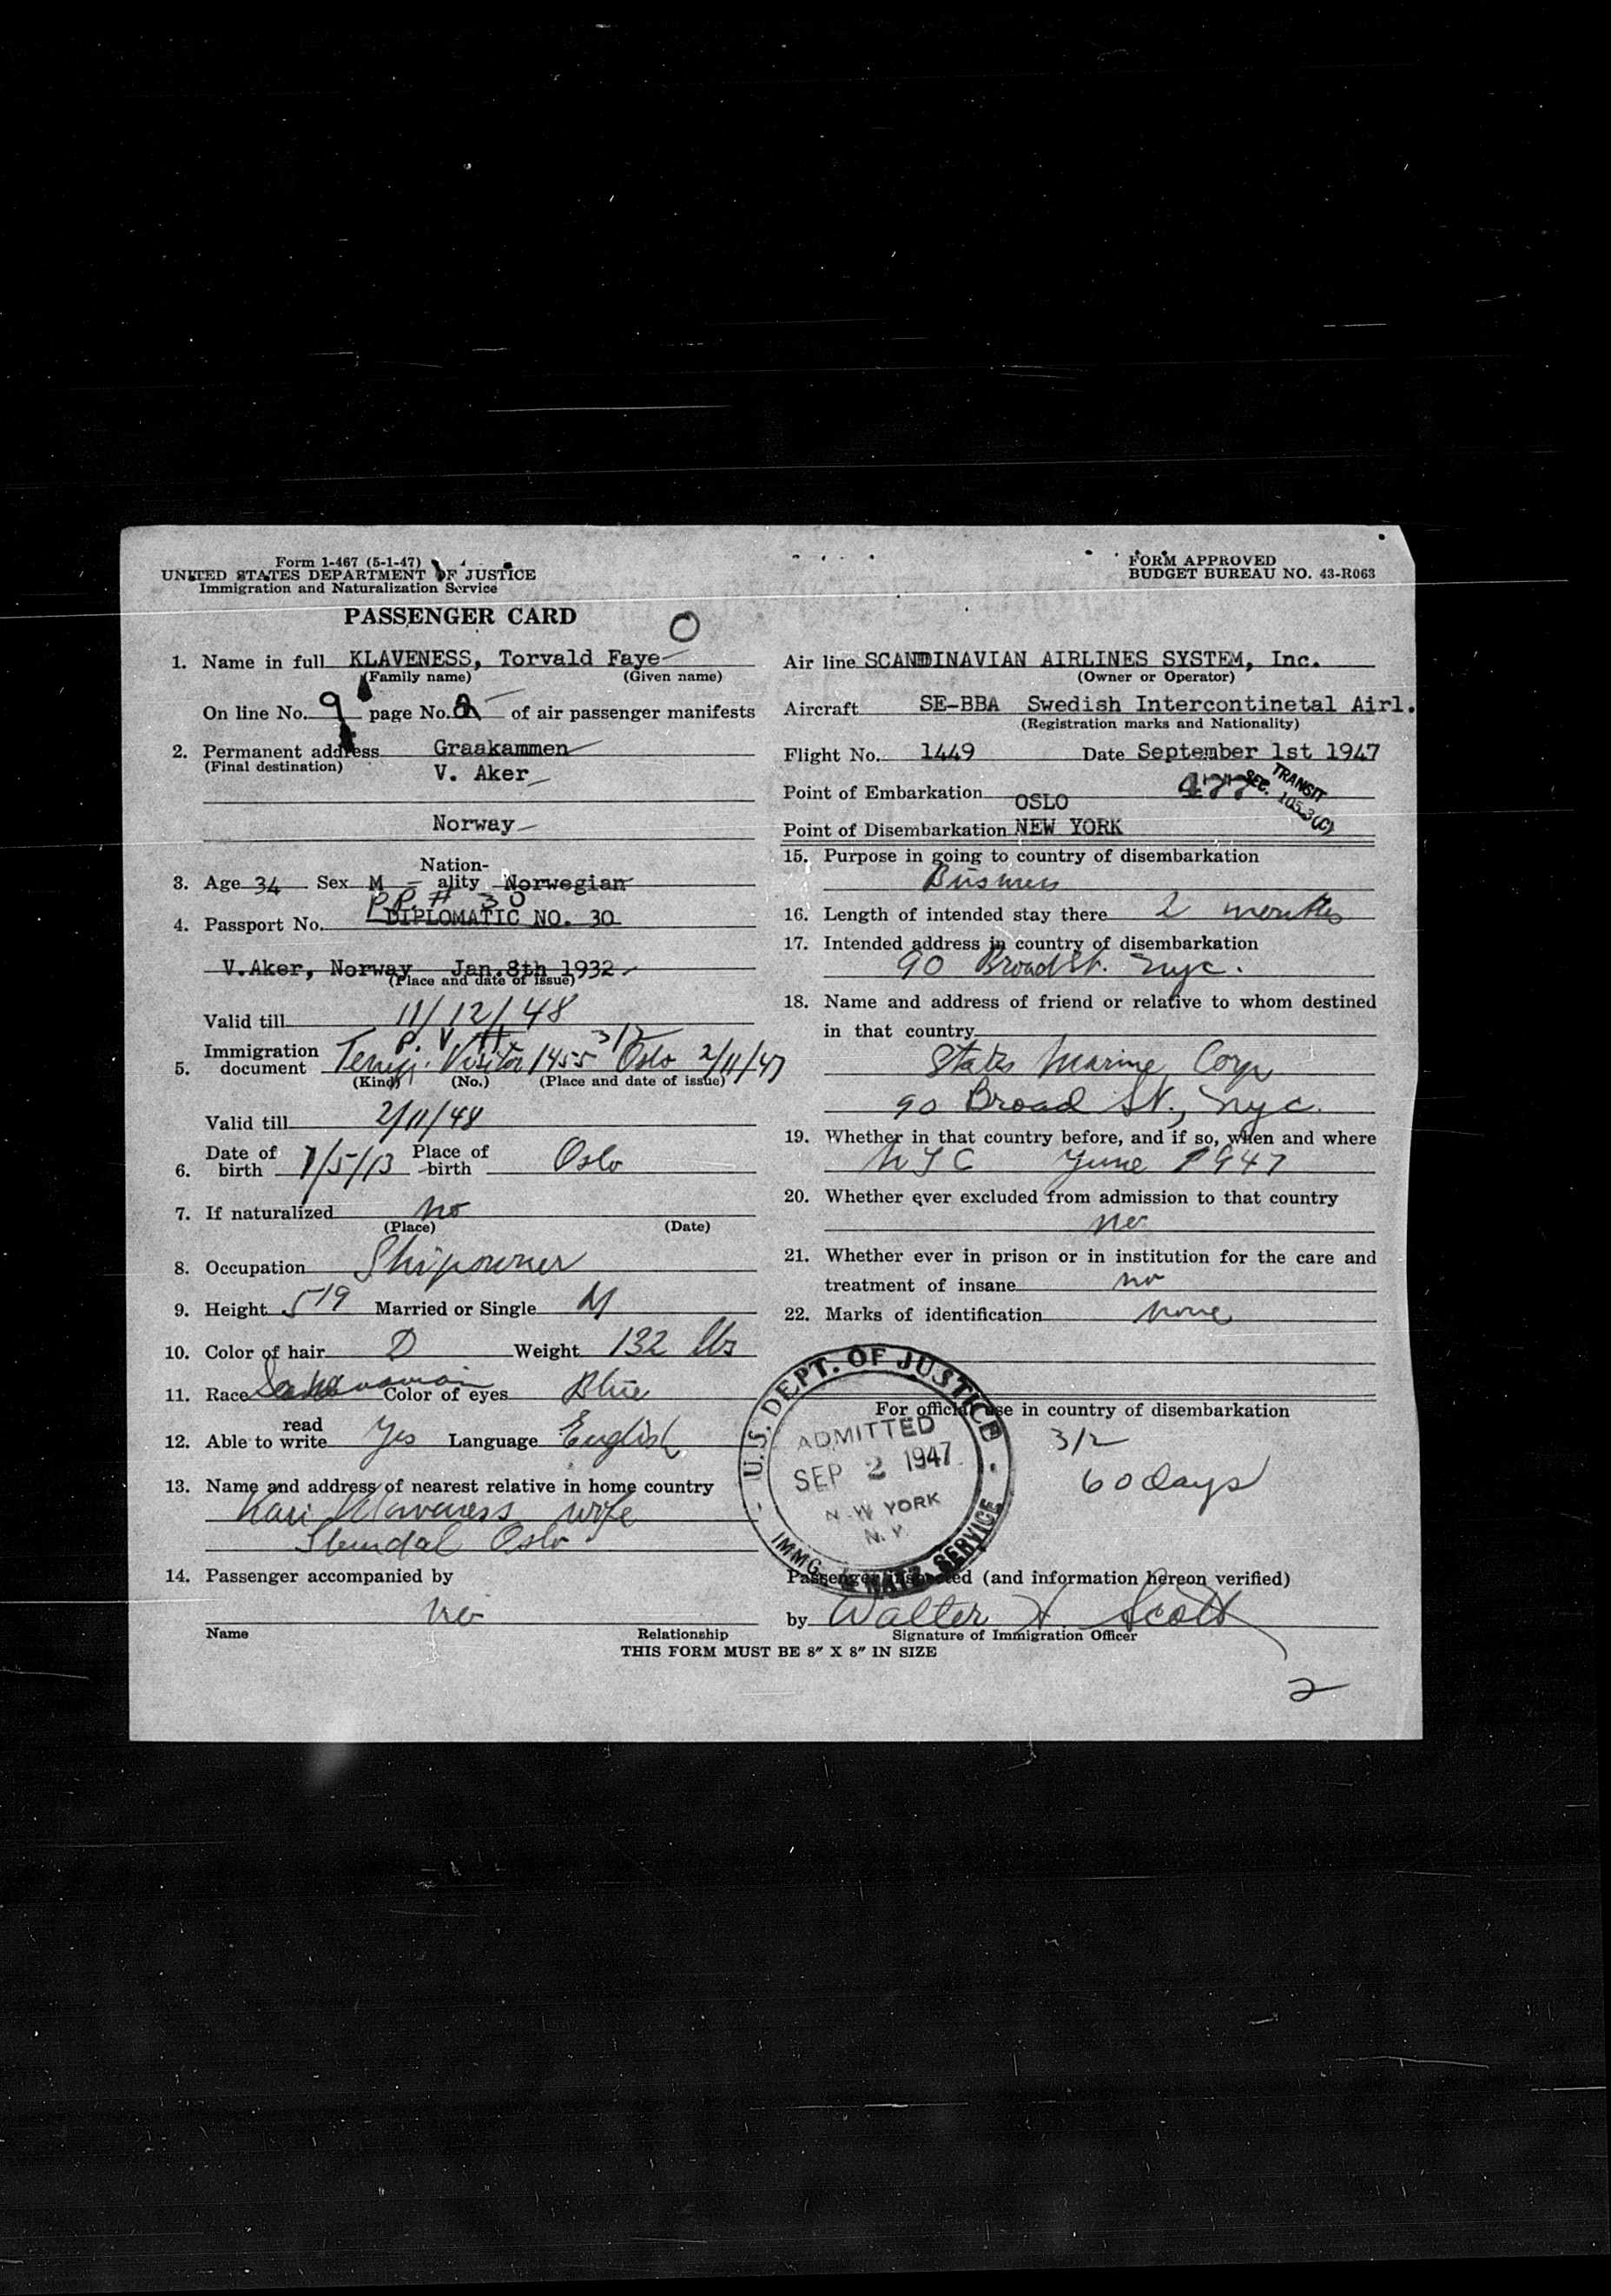 Form 1-467 (5-1-47)
UNITED STATES DEPARTMENT OF JUSTICE
Immigration and Naturalization Service
PASSENGER CARD
FORM APPROVED
BUDGET BUREAU NO. 43-R063
O
1. Name in full KLAVENESS, Torvald Faye
(Family name) (Given name)
On line No. 9 page No. 2 of air passenger manifests
2. Permanent address Graakammen
(Final destination) V. Aker
Norway
3. Age 34 Sex M Nation-ality Norwegian
P.P. # 30
4. Passport No. DIPLOMATIC NO. 30
V.Aker, Norway Jan.8th 1932
(Place and date of issue)
Valid till 11/12/48
P. V # 3/2
5. Immigration document Visitor 1455 Oslo 2/11/47
(Kind) (No.) (Place and date of issue)
Valid till 2/11/48
6. Date of birth 7/5/13 Place of birth Oslo
7. If naturalized no
(Place) (Date)
8. Occupation Shipowner
9. Height 5'9 Married or Single M
10. Color of hair D Weight 132 lbs
11. Race Color of eyes Blue
12. Able to read write Yes Language English
13. Name and address of nearest relative in home country
Kari Klaveness wife
Oslo
14. Passenger accompanied by
no
Name Relationship
Air line SCANDINAVIAN AIRLINES SYSTEM, Inc.
(Owner or Operator)
Aircraft SE-BBA Swedish Intercontinetal Airl.
(Registration marks and Nationality)
Flight No. 1449 Date September 1st 1947
477 TRANSIT
SEC. 105.3(C)
Point of Embarkation OSLO
Point of Disembarkation NEW YORK
15. Purpose in going to country of disembarkation
Business
16. Length of intended stay there 2 months
17. Intended address in country of disembarkation
90 Broad St. NYC.
18. Name and address of friend or relative to whom destined
in that country
States Marine Corp
90 Broad St., NYC.
19. Whether in that country before, and if so, when and where
NYC June 1947
20. Whether ever excluded from admission to that country
no
21. Whether ever in prison or in institution for the care and
treatment of insane no
22. Marks of identification none
For official use in country of disembarkation
3/2
60 days
U.S. DEPT. OF JUSTICE
ADMITTED
SEP 2 1947
NEW YORK
N.Y.
IMMG. & NATZ. SERVICE
Passenger inspected (and information hereon verified)
by Walter A Scott
Signature of Immigration Officer
THIS FORM MUST BE 8" X 8" IN SIZE
2